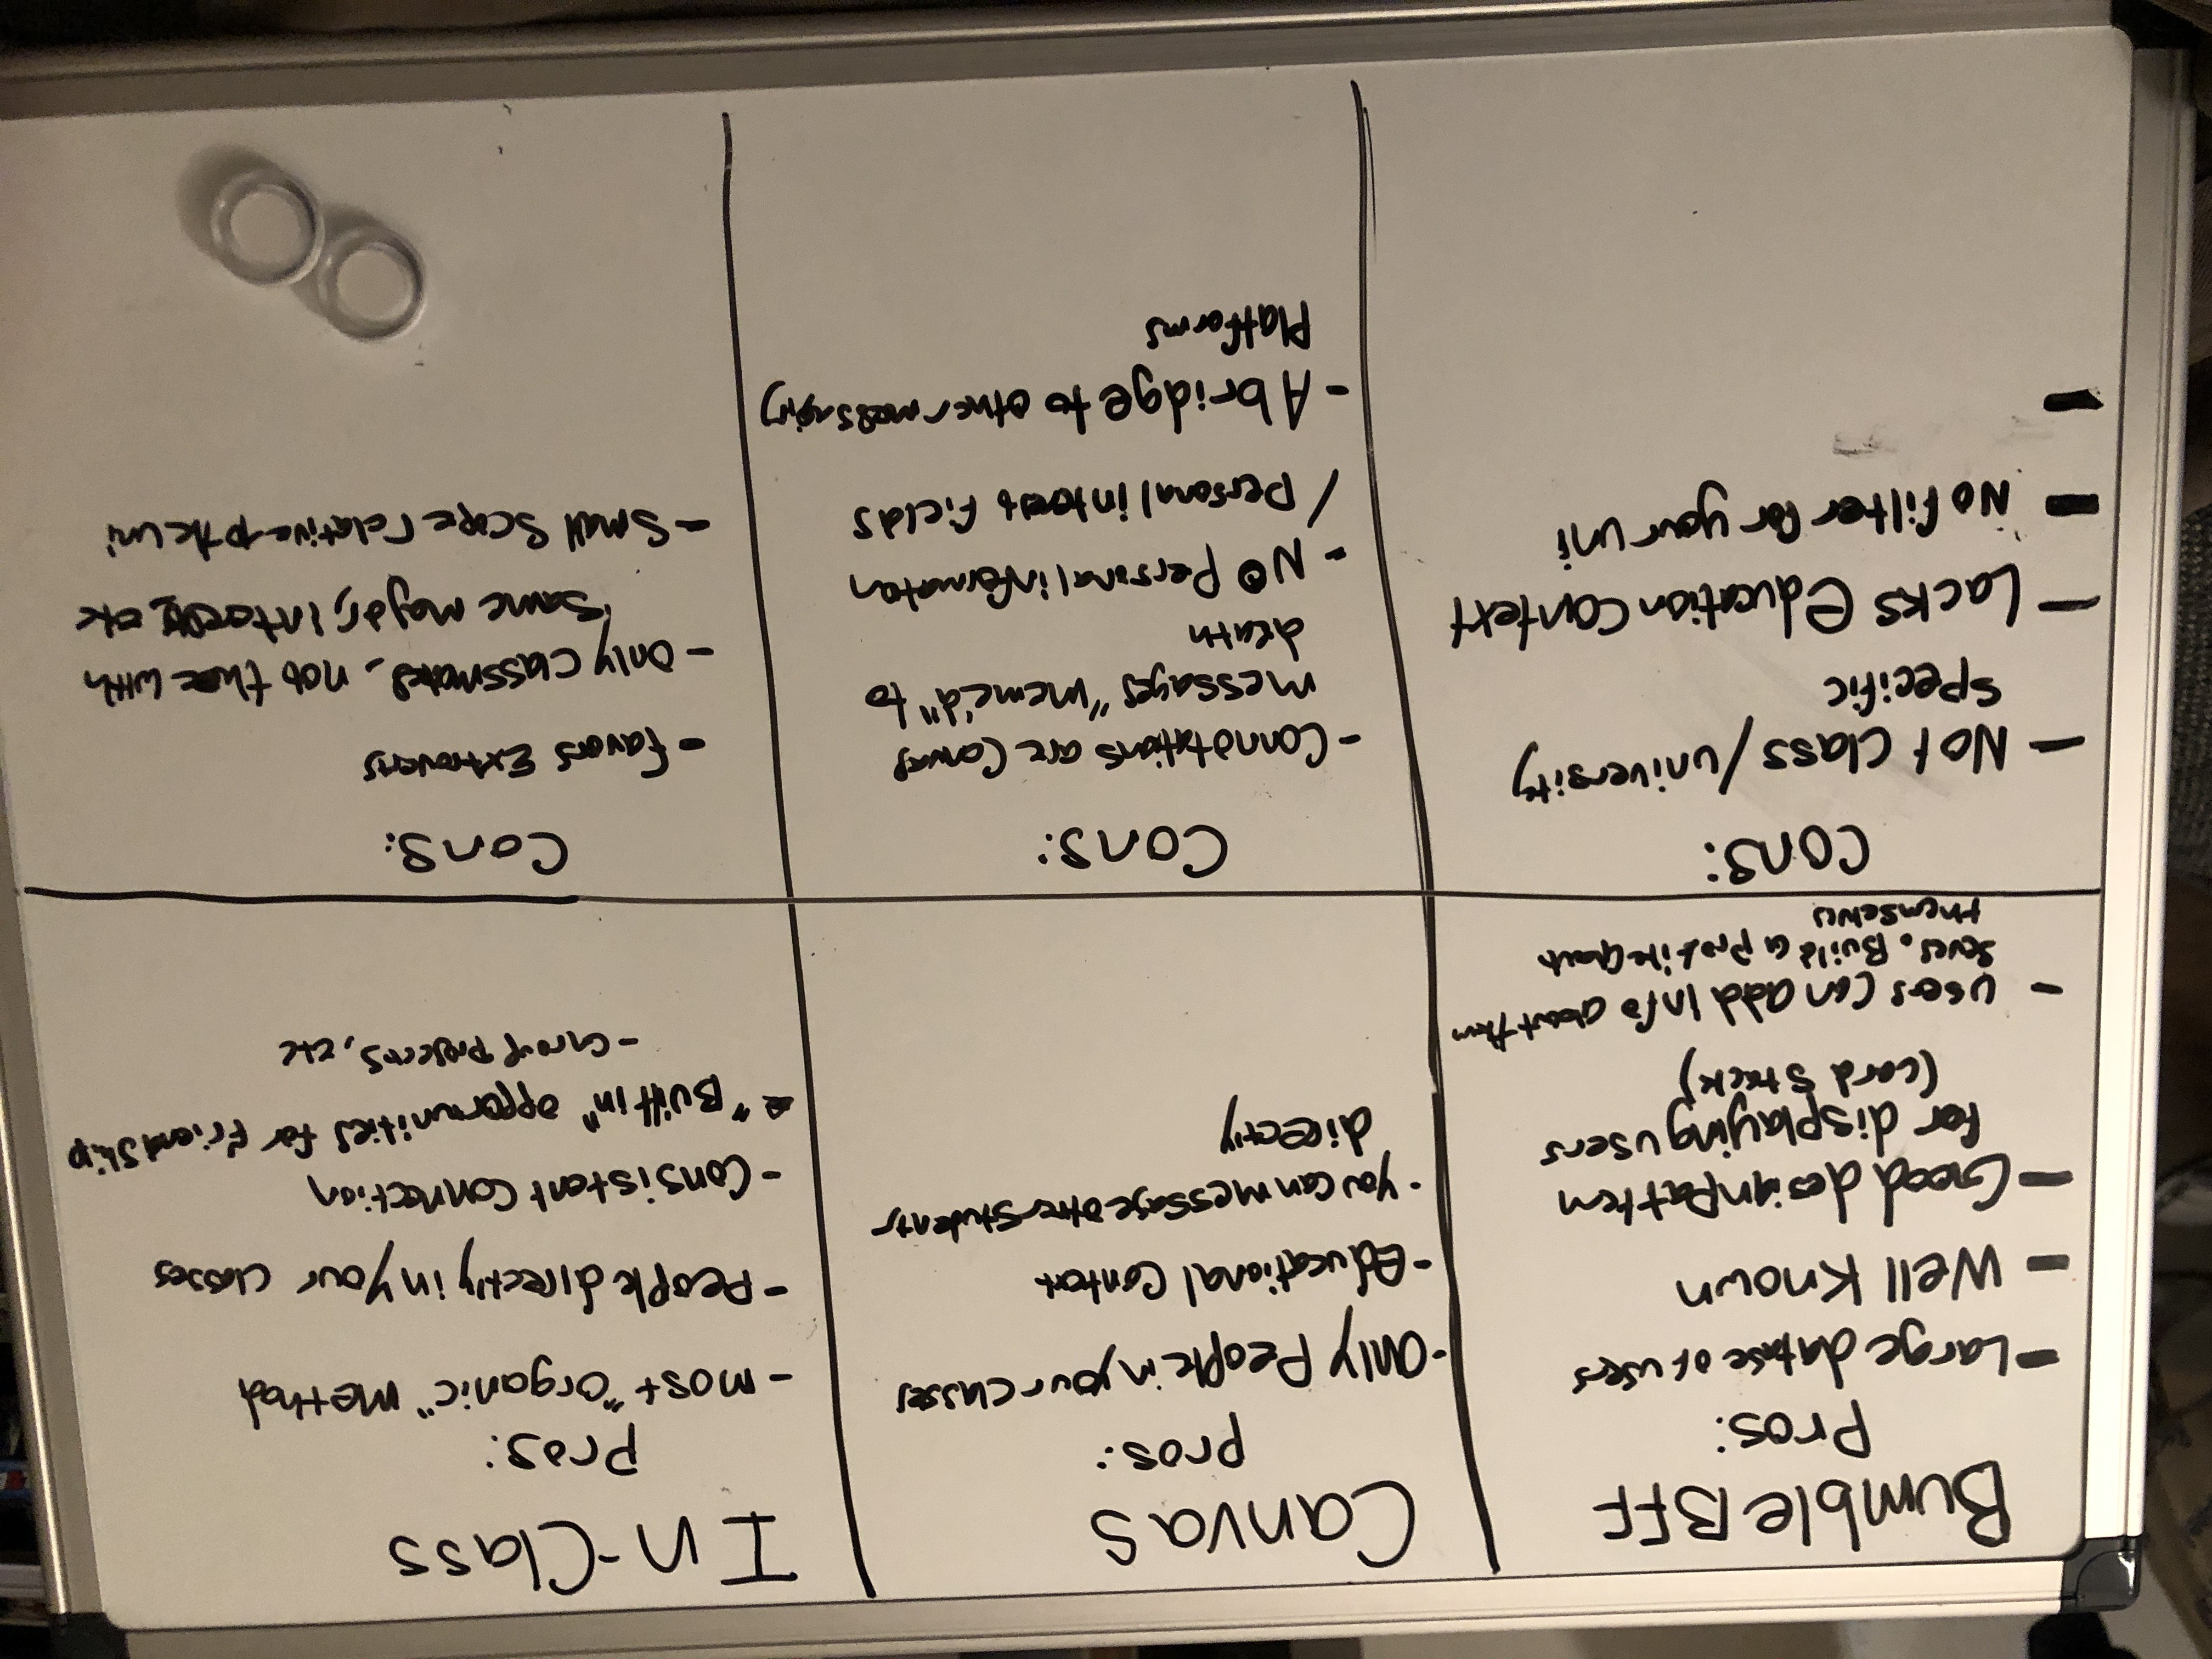 BumbleBFF
Pros:
- Large database of users
- Well Known
- Good design Pattern
for displaying users
(card stack)
- users can add info about them
selves. Build a profile about
themselves
Cons:
- Not class/university
specific
- Lacks education context
- No filter for your uni
-
Canvas
Pros:
- only people in your classes
- Educational Context
- you can message other students
directly
Cons:
- Connotations are Canvas
messages "meme'd" to
death
- No Personal information
/ Personal interest fields
- A bridge to other messaging
Platforms
In-Class
Pros:
- most "organic" method
- People directly in your classes
- Consistent Connection
- "Built in" opportunities for Friendship
- Group Projects, etc
Cons:
- favors Extroverts
- only classmates, not those with
same major, interests, etc
- Small Scope relative to the uni